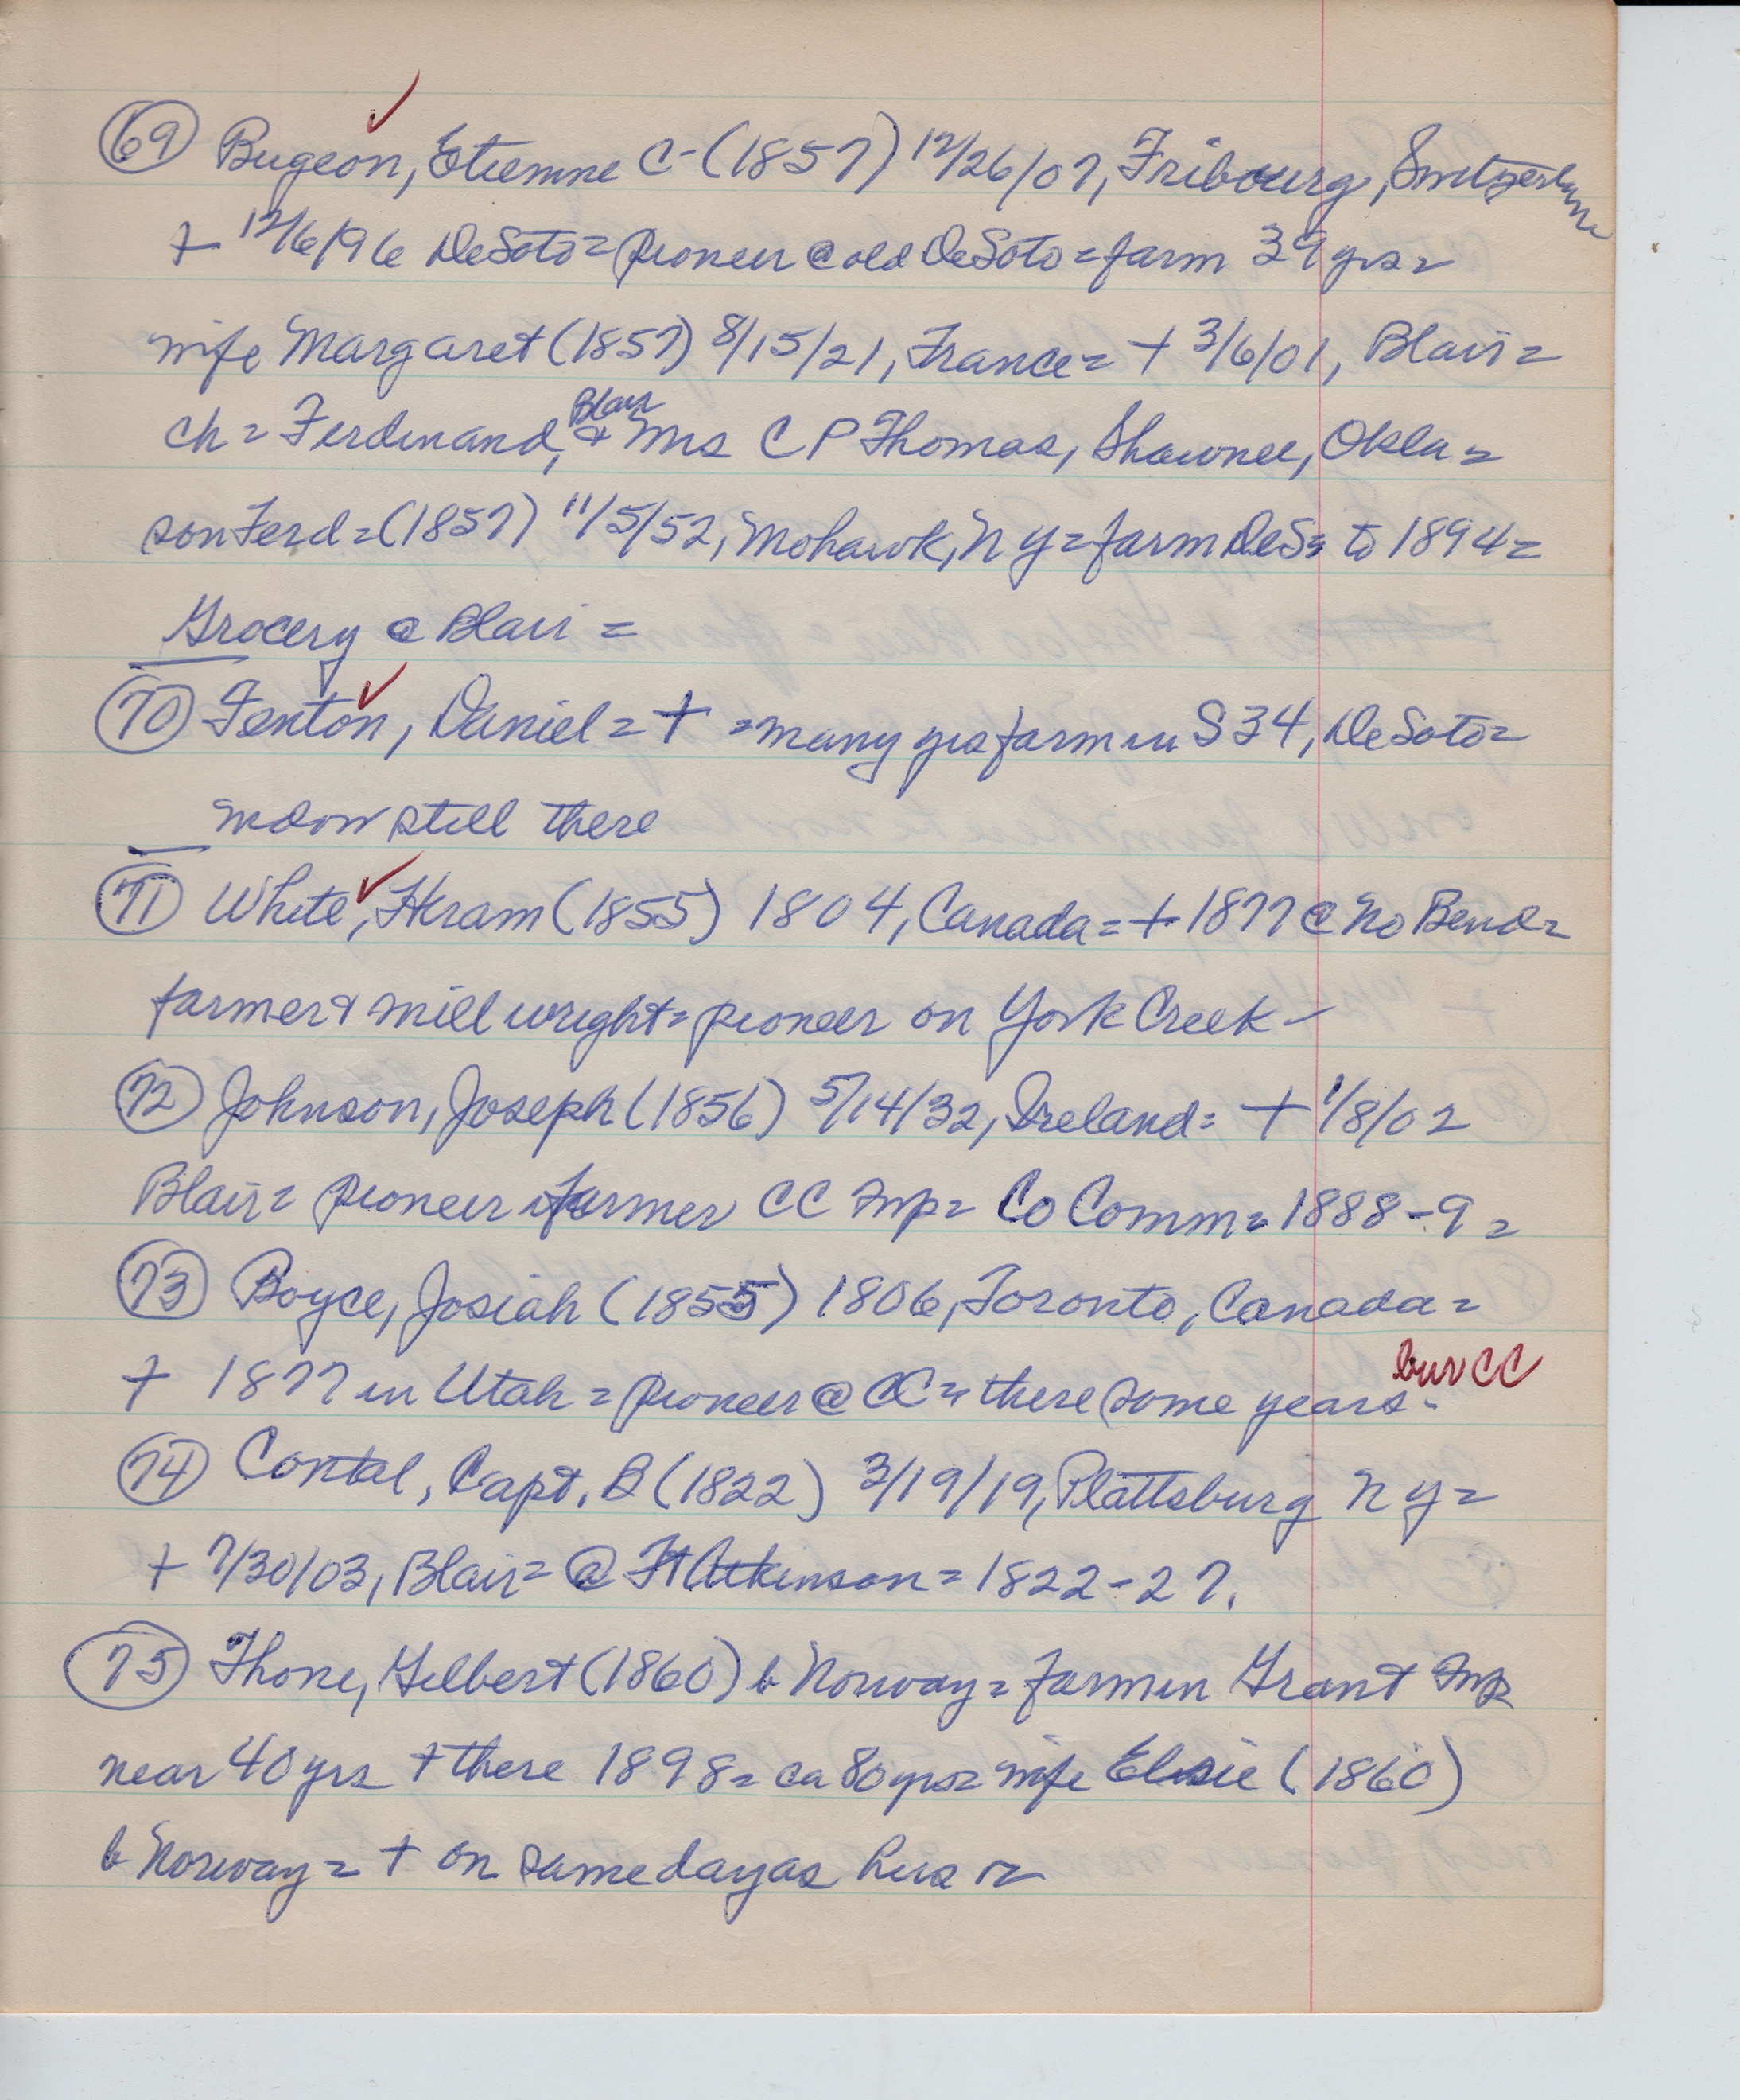 69 Bugeon, Etienne C - (1857) 12/26/07, Fribourg, Switzerland
+ 12/6/96 DeSoto = pioneer @ old DeSoto = farm 39 yrs =
wife Margaret (1857) 8/15/21, France = + 3/6/01, Blair =
Blair
ch = Ferdinand, & Mrs C P Thomas, Shawnee, Okla =
son Ferd = (1857) 11/5/52, Mohawk, N Y = farm DeS = to 1894 =
Grocery @ Blair =
70 Fenton, Daniel = + = many yrs farm in S 34, DeSoto =
widow still there
71 White, Hiram (1855) 1804, Canada = + 1877 @ No Bend =
farmer & mill wright = pioneer on York Creek -
72 Johnson, Joseph (1856) 5/14/32, Ireland = + 1/8/02
Blair = pioneer farmer CC Twp = Co Comm = 1888-9 =
73 Boyce, Josiah (1855) 1806, Toronto, Canada =
bur CC
+ 1877 in Utah = pioneer @ CC = there some years -
74 Contal, Capt. B (1822) 3/19/19, Plattsburg N Y =
+ 7/30/03, Blair = @ Ft Atkinson = 1822-27.
75 Thone, Gilbert (1860) b Norway = farm in Grant Twp
near 40 yrs + there 1898 = ca 80 yrs = wife Elsie (1860)
b Norway = + on same day as hus